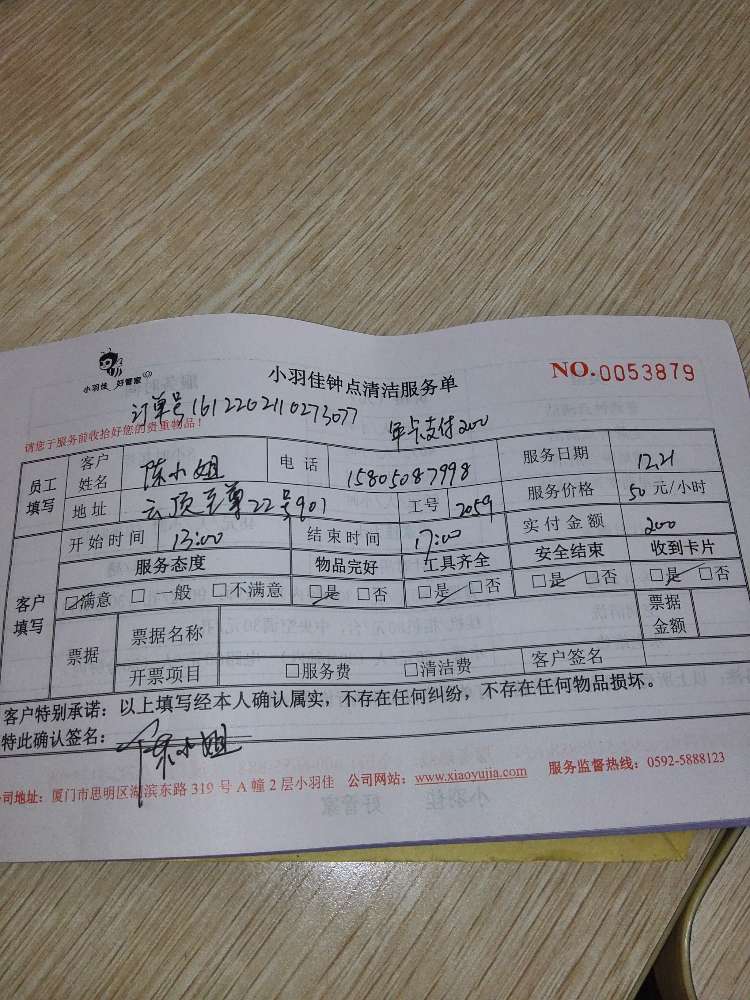 小羽佳 好管家
小羽佳钟点清洁服务单
NO.0053879
订单号1612202110273077
年卡支付200
请您于服务前收拾好您的贵重物品!
员工填写 客户姓名 陈小姐 电话 15805087998 服务日期 12.21
地址 云顶至尊22号901 工号 2059 服务价格 50元/小时
客户填写 开始时间 13:00 结束时间 17:00 实付金额 200
服务态度 物品完好 工具齐全 安全结束 收到卡片
☑满意 □一般 □不满意 ☑是 □否 ☑是 □否 ☑是 □否 ☑是 □否
票据 票据名称 票据金额
开票项目 □服务费 □清洁费 客户签名
客户特别承诺:以上填写经本人确认属实,不存在任何纠纷,不存在任何物品损坏。
特此确认签名: 陈小姐
公司地址:厦门市思明区湖滨东路 319 号 A 幢 2 层小羽佳 公司网站:www.xiaoyujia.com 服务监督热线:0592-5888123